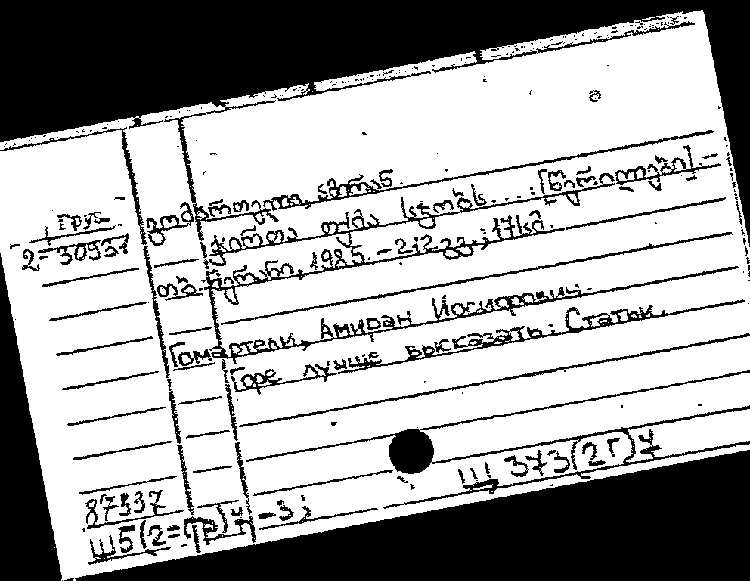 Груз.
2=30937
გომართელი, ამირან.
ჭირთა თქმა სჯობს... : [წერილები]. –
თბ. : მერანი, 1985. – 212 გვ.; 17 სმ.
Гомартели, Амиран Иосифович.
Горе лучше высказать: Статьи.
87337
Ш5(2=Гр)7 -3;
Ш 373(2Г)7